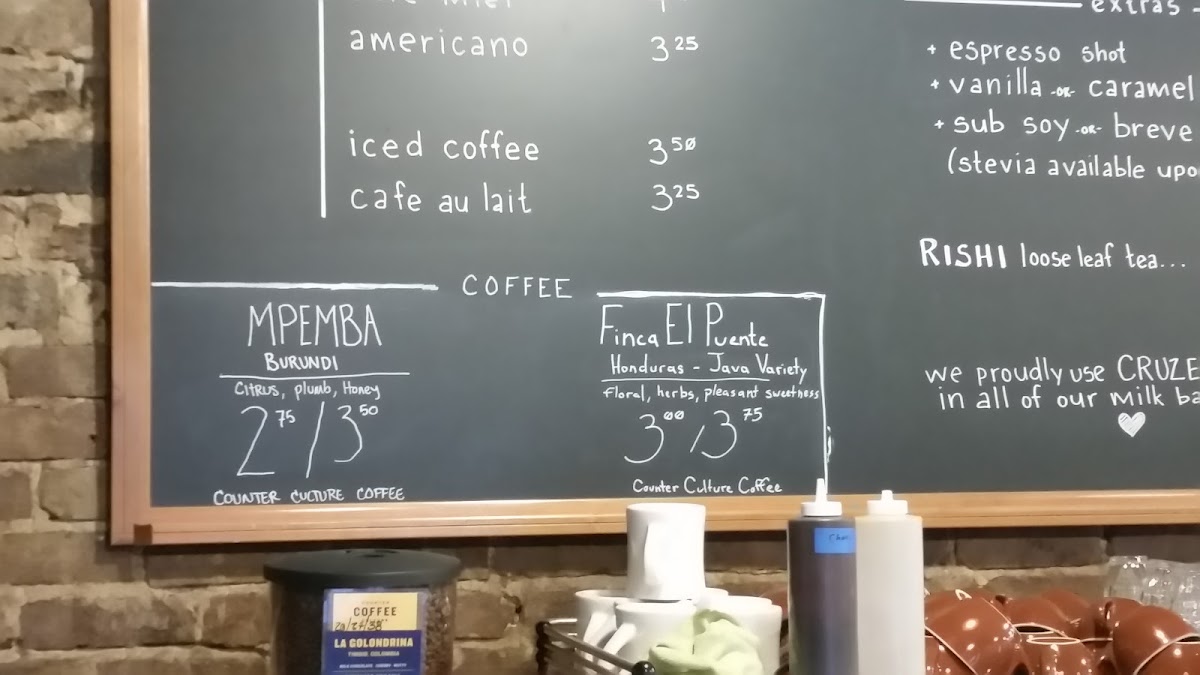 americano 3 25
iced coffee 3 50
cafe au lait 3 25
extras -
+ espresso shot
+ vanilla -or- caramel
+ sub soy -or- breve
(stevia available upo
RISHI loose leaf tea...
we proudly use CRUZE
in all of our milk ba
COFFEE
MPEMBA
BURUNDI
CITRUS, plumb, Honey
2 75 / 3 50
COUNTER CULTURE COFFEE
Finca El Puente
Honduras - Java Variety
floral, herbs, pleasant sweetness
3 00 / 3 75
Counter Culture Coffee
COFFEE
LA GOLONDRINA